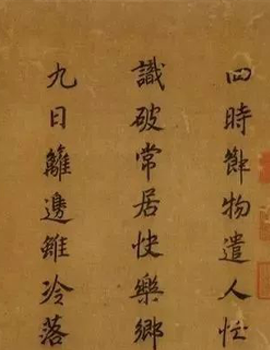 四時節物遣人忙
識破常居快樂鄉
九日籬邊雖冷落